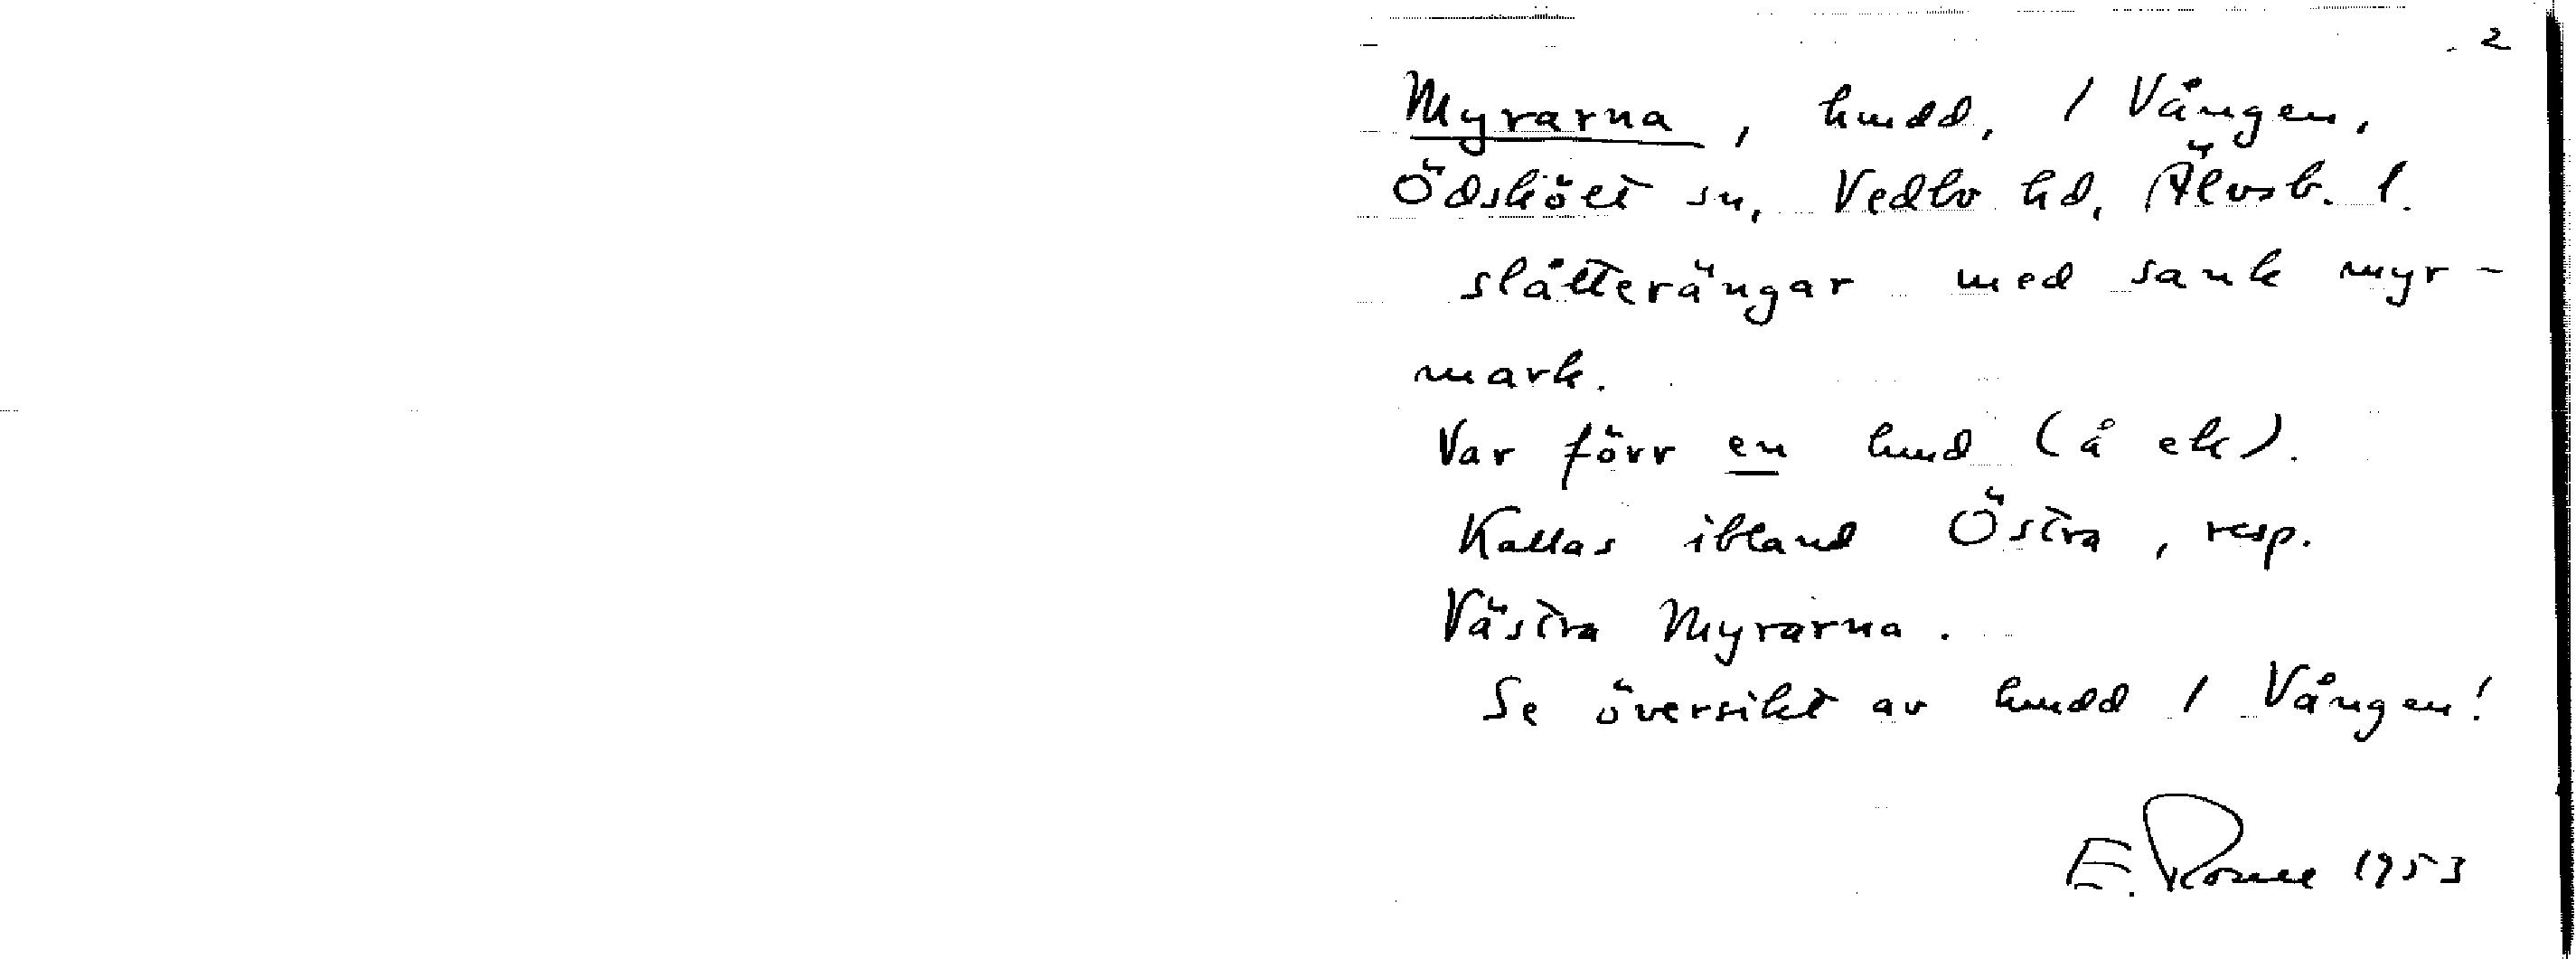 2
Myrarna, hmdd, 1 Vången,
Ödsköelt sn, Vedbo hd, Älvsb. l.
slåtterängar med sank myr-
mark.
Var förr en hmd (å ek).
Kallas ibland Östra, resp.
Västra Myrarna.
Se översikt av hmdd 1 Vången!
E. 1953